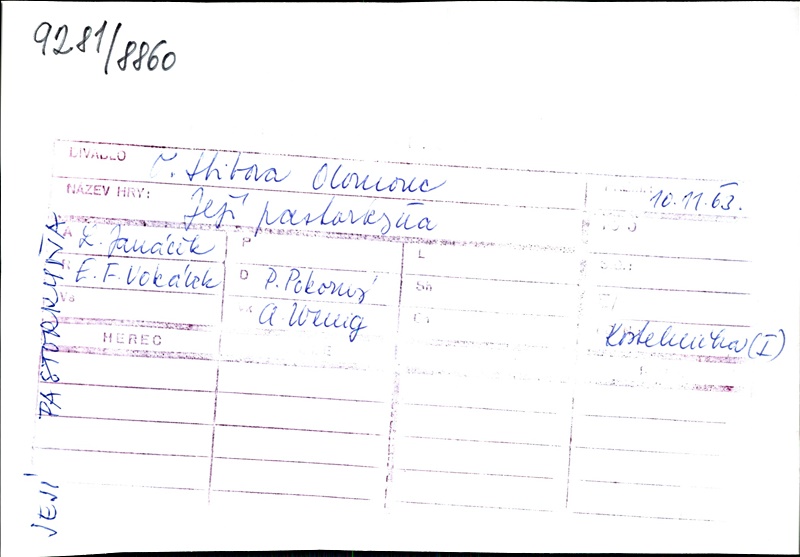 9281/8860
DIVADLO O. Stibora Olomouc
10.11.63.
NÁZEV HRY: Její pastorkyňa
A L. Janáček
P
L
E. F. Vokálek
D P. Pokorný
A. Wenig
Kostelnička (I)
HEREC
JEJÍ PASTORKYŇA